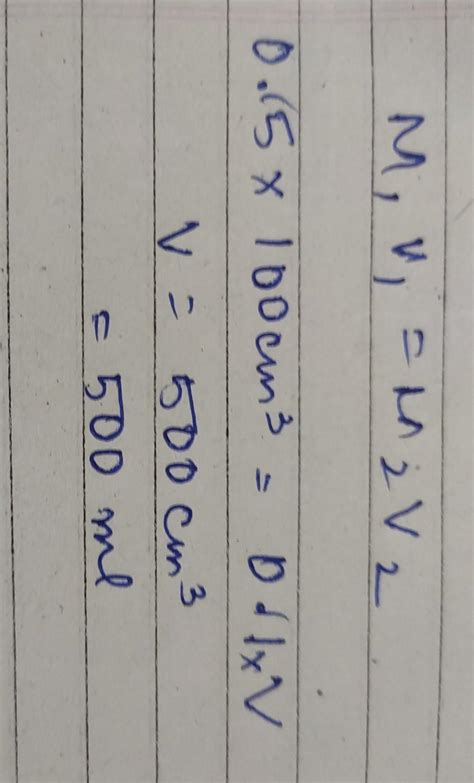 M₁ V₁ = M₂ V₂
0.5 × 100 cm³ = 0.1 × V
V = 500 cm³
= 500 ml